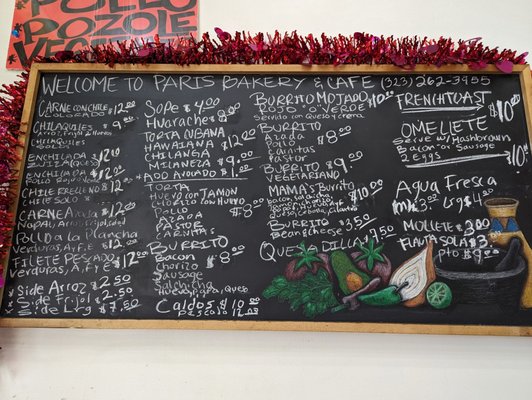 POLLO
POZOLE
WELCOME TO PARIS BAKERY & CAFE (323) 262-3455
CARNE CON CHILE $12.00
COLORADO
CHILAQUILES $9.00
CHILAQUILES
ENCHILADA $12.00
ENCHILADA $12.00
CHILE RRELLENO $12.00
CHILE SOLO
CARNE Azada $12.00
POLLO a la Plancha
Verduras, A, F y E $12.00
FILETE PESCADO
Verduras, A, F y E $12.00
Side Arroz $2.50
Side Frijol $2.50
Side Lrg $7.50
SOPE $4.00
Huaraches $8.00
TORTA CUBANA
HAWAIANA $12.00
CHILANGA
MILANEZA $9.00
ADD AVOCADO $1.00
TORTA
HUEVO con JAMON
CHORIZO con HUEVO
POLLO
AZADA $8.00
PASTOR
CARNITAS
BURRITO
Bacon $8.00
Chorizo
Sausage
Salchicha
Huevo, papa, y Queso
Caldos $10.00
Pescado 12.00
BURRITO MOJADO $10.00
ROJO "O" VERDE
Servido con Queso y crema
BURRITO
Azada
Pollo $8.00
Carnitas
Pastor
BURRITO $9.00
VEGETARIANO
MAMA'S Burrito $10.00
BURRITO $3.50
Bean & cheese
Quesadilla $7.50
FRENCH TOAST $10.00
OMELETE
Serve w/ Hashbrown
Bacon or Sausage
2 Eggs $10.00
Agua Fresca
Lrg $4.00
MOLLETE $5.00
FLAUTA SOLA $3.00